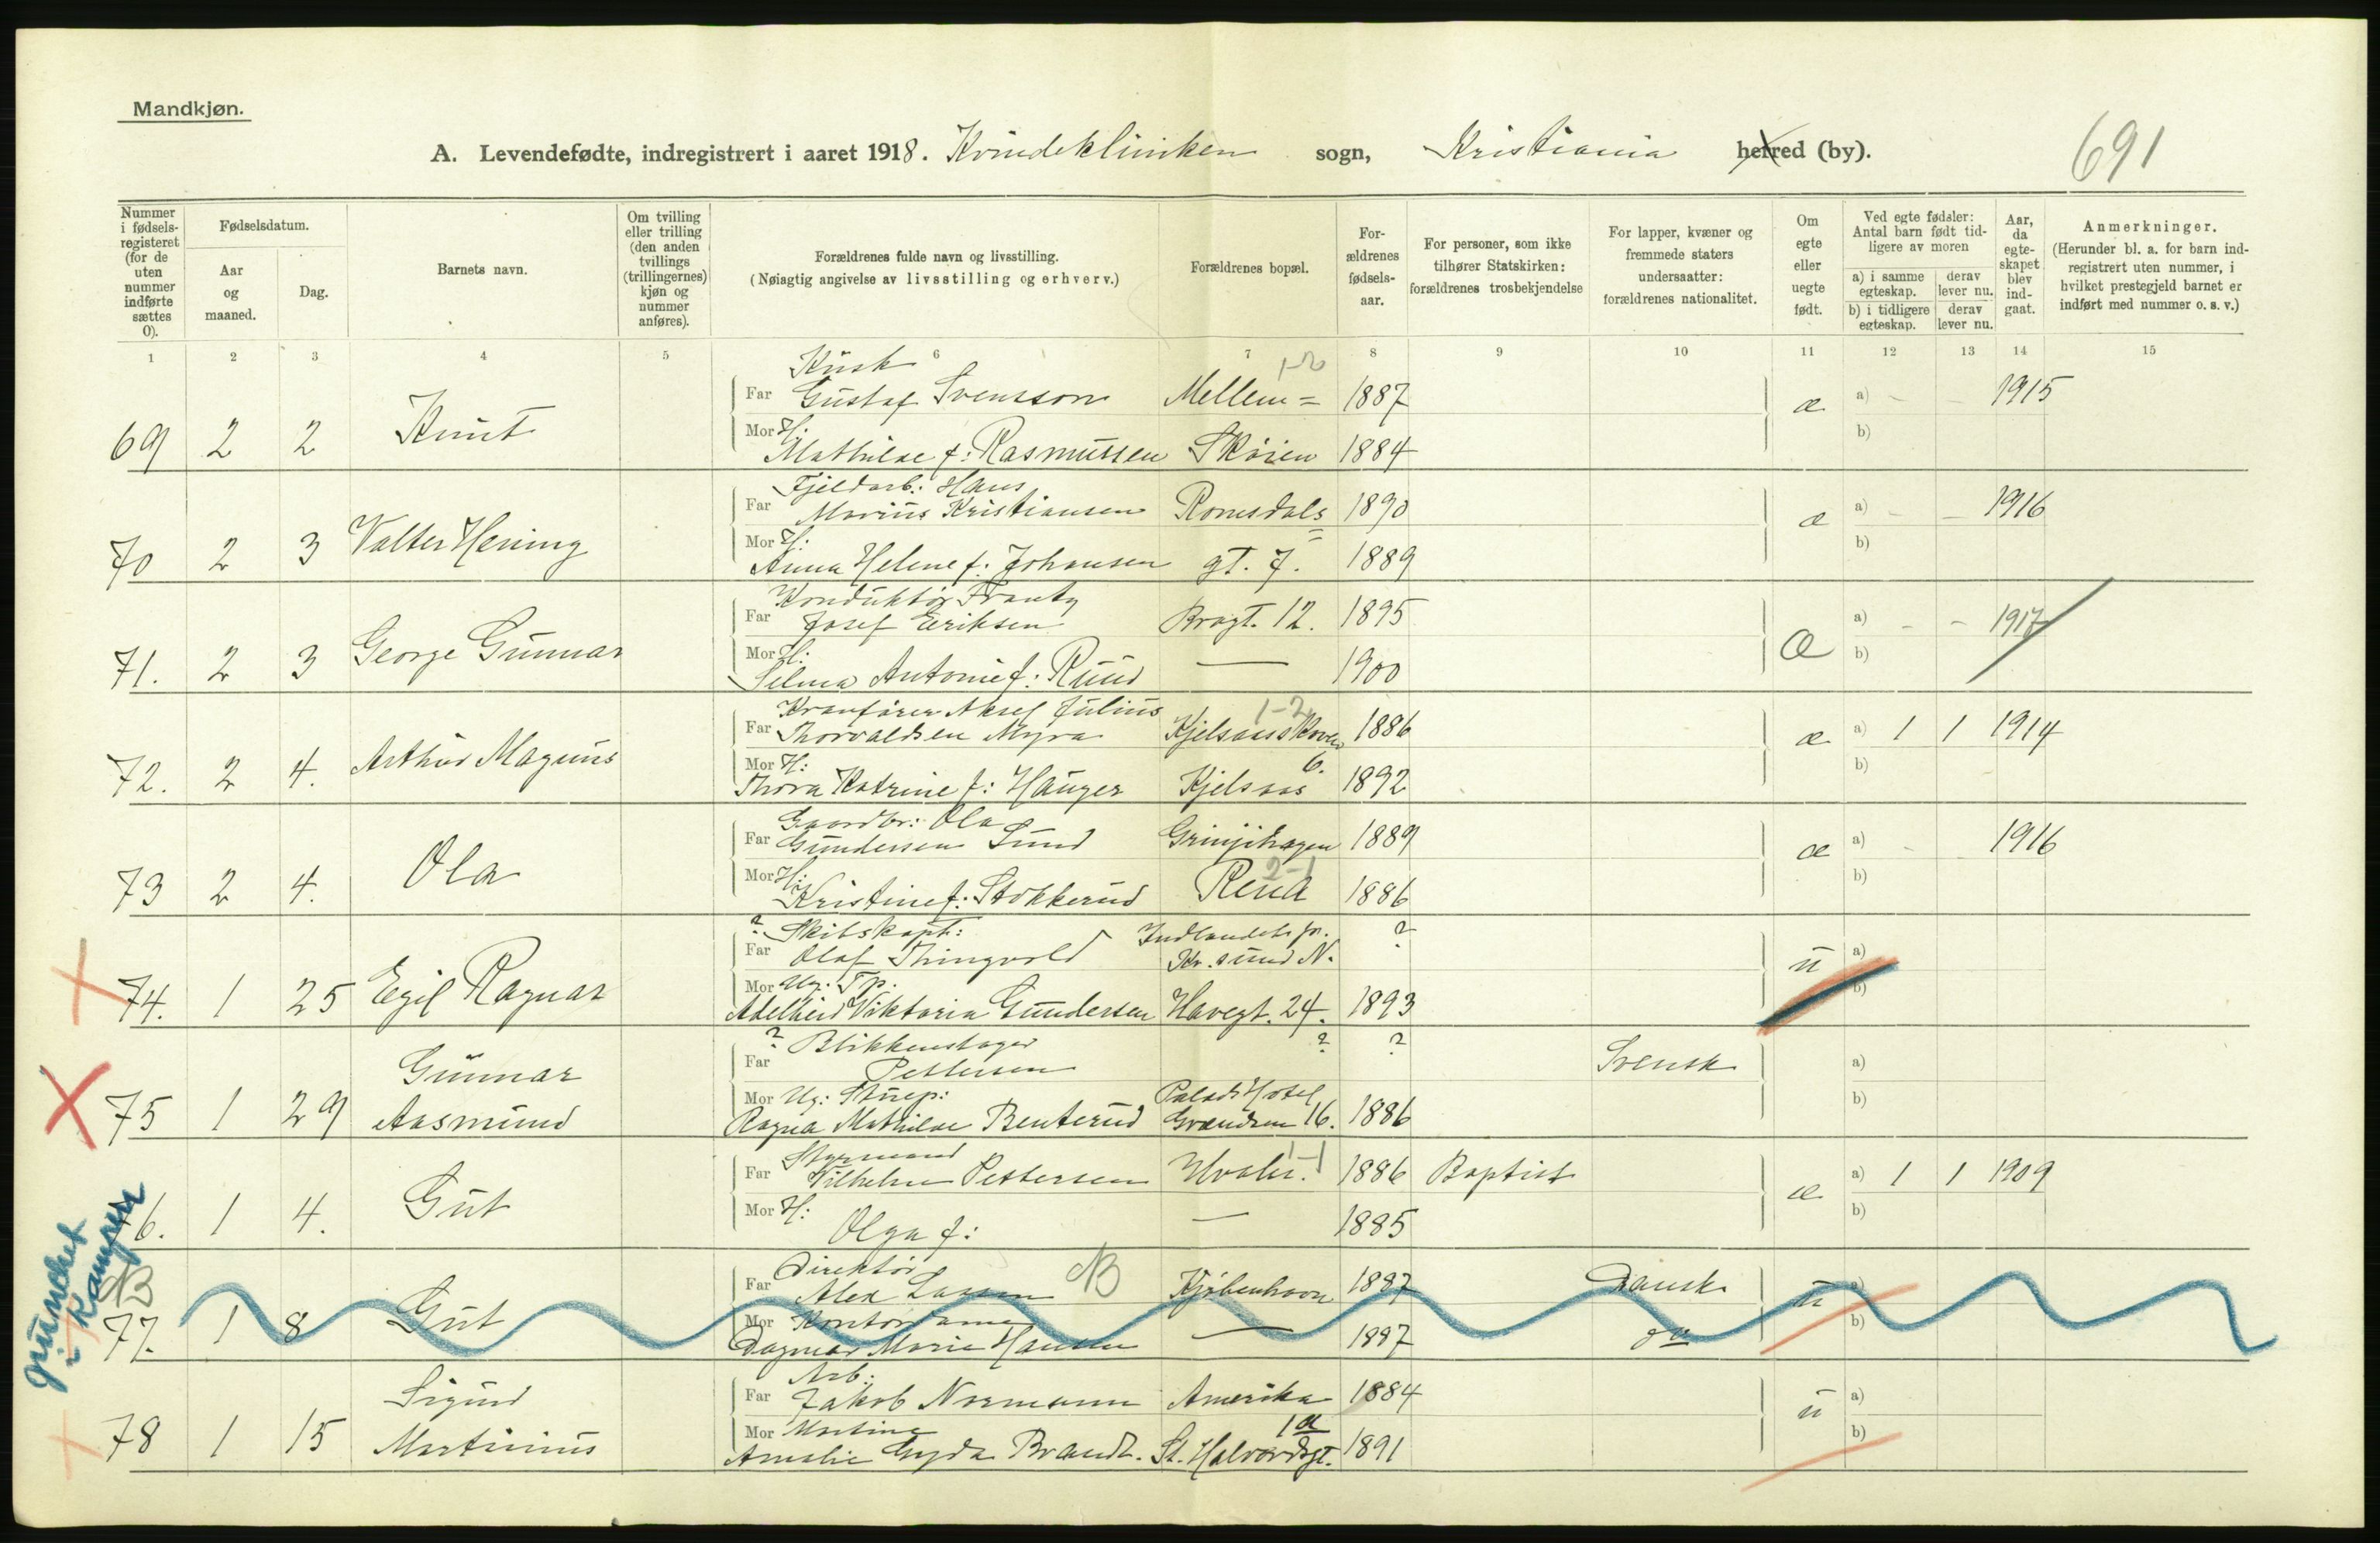 Mandkjøn.
A. Levendefødte, indregistrert i aaret 1918. Kvindeklinikken sogn, Kristiania herred (by).
691
Nummer i fødsels-registeret (for de uten nummer indførte sættes 0).
Fødselsdatum.
Aar og maaned.
Dag.
Barnets navn.
Om tvilling eller trilling (den anden tvillings (trillingernes) kjøn og nummer anføres).
Forældrenes fulde navn og livsstilling.
(Nøiagtig angivelse av livsstilling og erhverv.)
Forældrenes bopæl.
For-ældrenes fødsels-aar.
For personer, som ikke tilhører Statskirken: forældrenes trosbekjendelse
For lapper, kvæner og fremmede staters undersaatter: forældrenes nationalitet.
Om egte eller uegte født.
Ved egte fødsler: Antal barn født tid-ligere av moren
a) i samme egteskap. derav lever nu.
b) i tidligere egteskap. derav lever nu.
Aar, da egte-skapet blev ind-gaat.
Anmerkninger.
(Herunder bl. a. for barn ind-registrert uten nummer, i hvilket prestegjeld barnet er indført med nummer o. s. v.)
1 2 3 4 5 6 7 8 9 10 11 12 13 14 15
Kusk 1-2
Far Gustaf Svensson Mellem= 1887 a) - - 1915
69 2 2 Knut æ
Mor H: Mathilde f: Rasmussen Skøien 1884 b)
Fjeldarb: Hans
Far Marius Kristiansen Romsdals= 1890 a) - - 1916
70 2 3 Valter Hening æ
Mor H: Anna Helene f: Johansen gt. 7. 1889 b)
Konduktør Frantz
Far Josef Eriksen Brogt. 12. 1895 a) - - 1917
71. 2 3 George Gunnar æ
Mor H: Selma Antonie f: Ruud — 1900 b)
Kranfører Aksel Julius 1-2
Far Thorvaldsen Myra Kjelsaas 1886 a) 1 1 1914
72. 2 4. Arthur Magnus æ
Mor H: Thora Katrine f: Hauger 6. Kjelsaas 1892 b)
Gaardbr: Ola
Far Gundersen Sund 1889 a) - - 1916
73 2 4. Ola æ
2-1
Mor H: Kristine f: Stokkerud Rena 1886 b)
? Skibskapt: Indlandets
Far Olaf Thingvold Kr.sund N. ? a)
74. 1 25 Egil Ragnar u
Mor Ug: Tp: Adelheid Viktoria Gundersen Havegt. 24. 1893 b)
? Blikkenslager
Far Pettersen ? ? Svensk a)
75 1 29 Gunnar Aasmund
Mor Ug: Stuep: Palads Hotel
Ragna Mathilde Benterud 16. 1886 b)
Styrmand 1-1
Far Vilhelm Pettersen Hvaler. 1886 Baptist a) 1 1 1909
76. 1 4. Gut æ
Mor H: Olga f: — 1885 b)
NB
Direktør NB
Far Alex Kjøbenhavn 1887 Dansk a)
77. 1 8 Gut u
Mor Kontordame Dagmar Marie Hansen — 1887 do b)
Arb:
Far Jakob Normann Amerika 1884 a)
78 1 15 Sigurd Martinius u
Mor Martine 1a
Amalie Gyda Brandt. St. Halvardsgt. 1891 b)